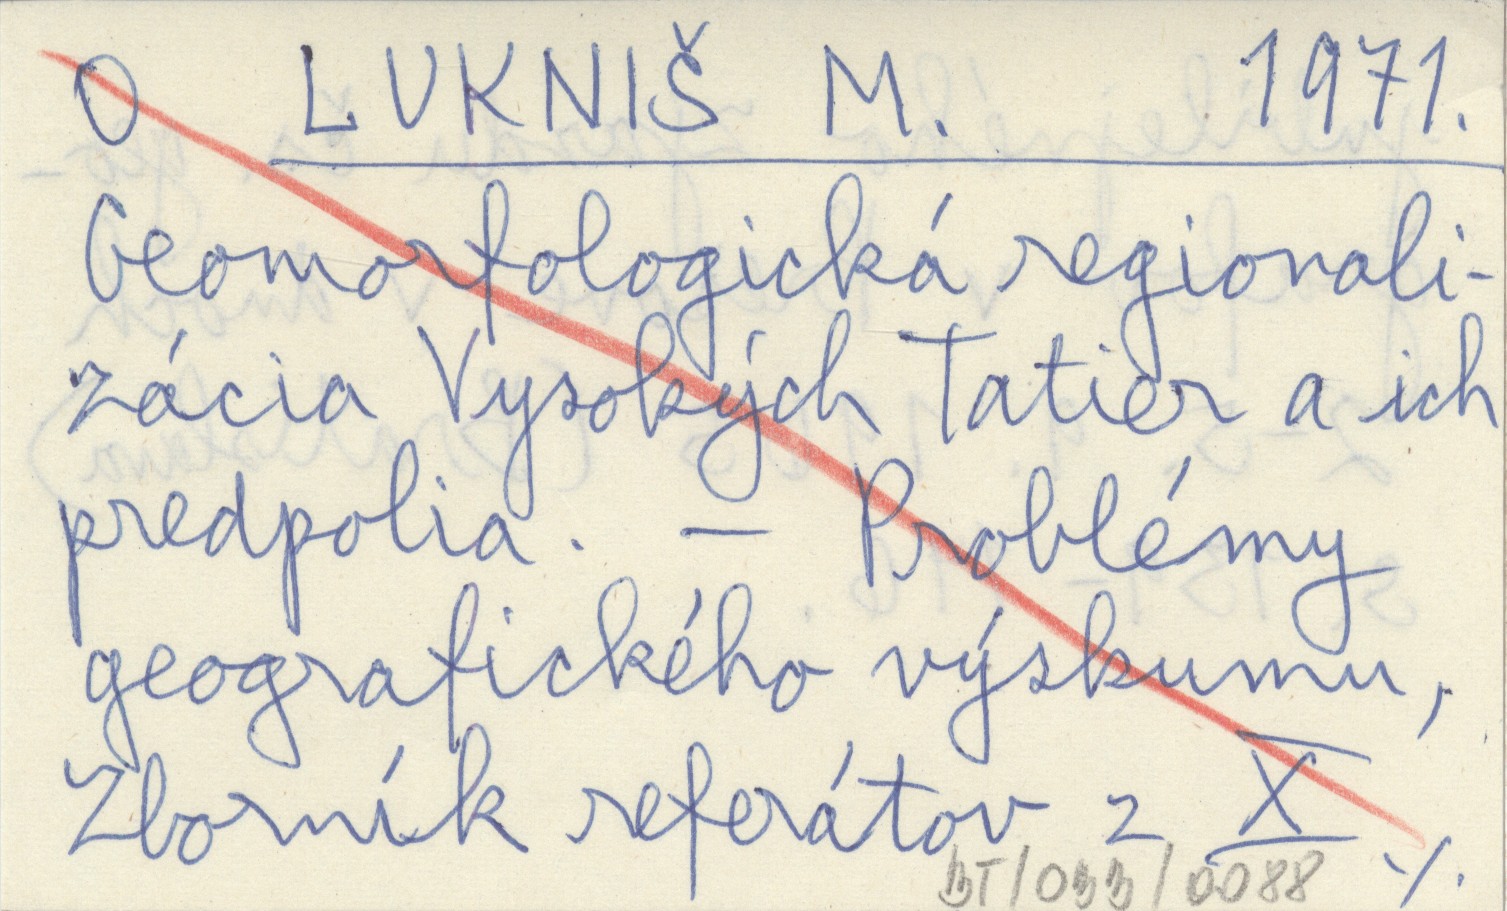 O LUKNIŠ M. 1971.
Geomorfologická regionali-
zácia Vysokých Tatier a ich
predpolia. — Problémy
geografického výskumu,
Zborník referátov z X
BT/033/0088 ./.